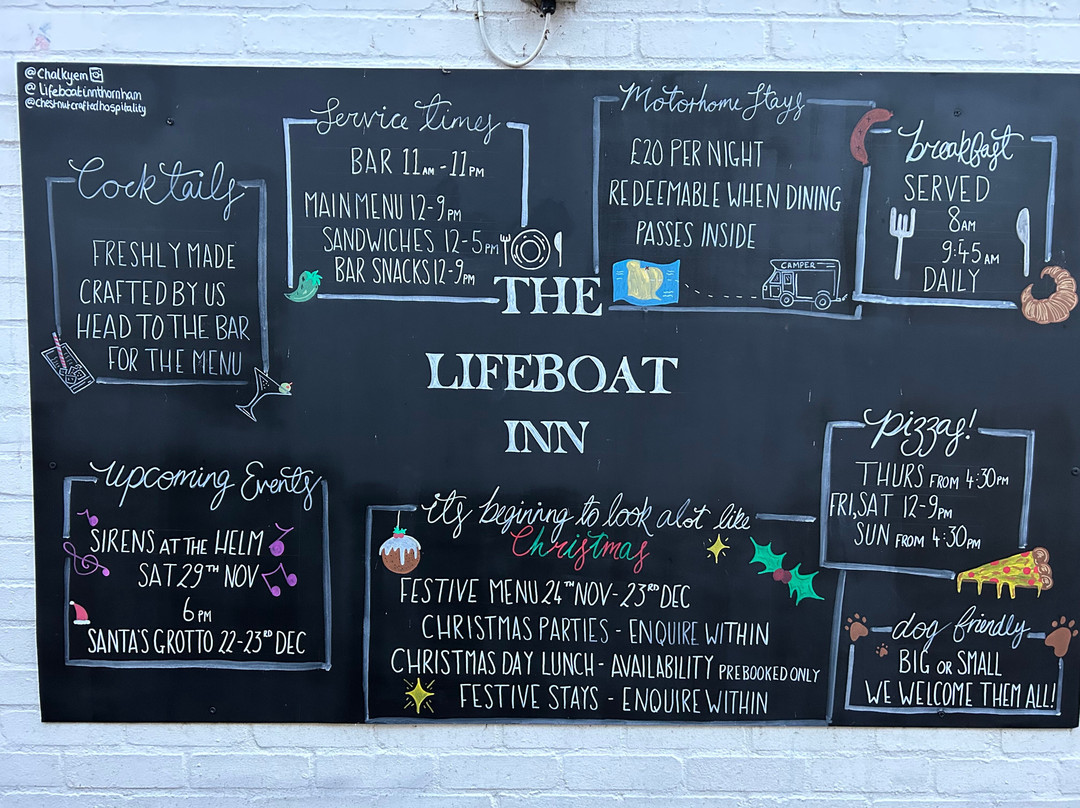 @Chalkyem
@Lifeboatinnthornham
@chestnutcraftedhospitality
Cocktails
FRESHLY MADE
CRAFTED BY US
HEAD TO THE BAR
FOR THE MENU
Service times
BAR 11AM - 11PM
MAIN MENU 12-9PM
SANDWICHES 12-5PM
BAR SNACKS 12-9PM
Motorhome Stays
£20 PER NIGHT
REDEEMABLE WHEN DINING
PASSES INSIDE
CAMPER
breakfast
SERVED
8AM
-
9:45AM
DAILY
THE
LIFEBOAT
INN
Upcoming Events
SIRENS AT THE HELM
SAT 29TH NOV
6PM
SANTA'S GROTTO 22-23RD DEC
its begining to look alot like
Christmas
FESTIVE MENU 24TH NOV - 23RD DEC
CHRISTMAS PARTIES - ENQUIRE WITHIN
CHRISTMAS DAY LUNCH - AVAILABILITY PREBOOKED ONLY
FESTIVE STAYS - ENQUIRE WITHIN
pizzas!
THURS FROM 4:30PM
FRI, SAT 12-9PM
SUN FROM 4:30PM
dog friendly
BIG OR SMALL
WE WELCOME THEM ALL!